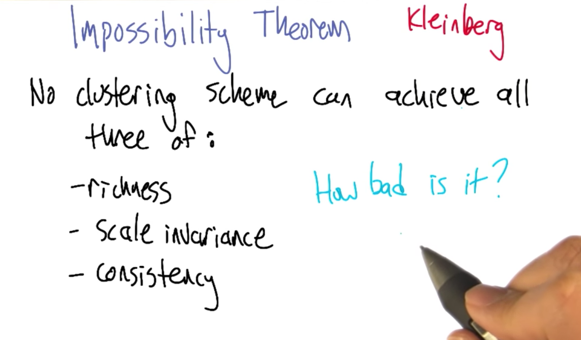 Impossibility Theorem Kleinberg
No clustering scheme can achieve all
three of:
- richness
- scale invariance
- consistency
How bad is it?